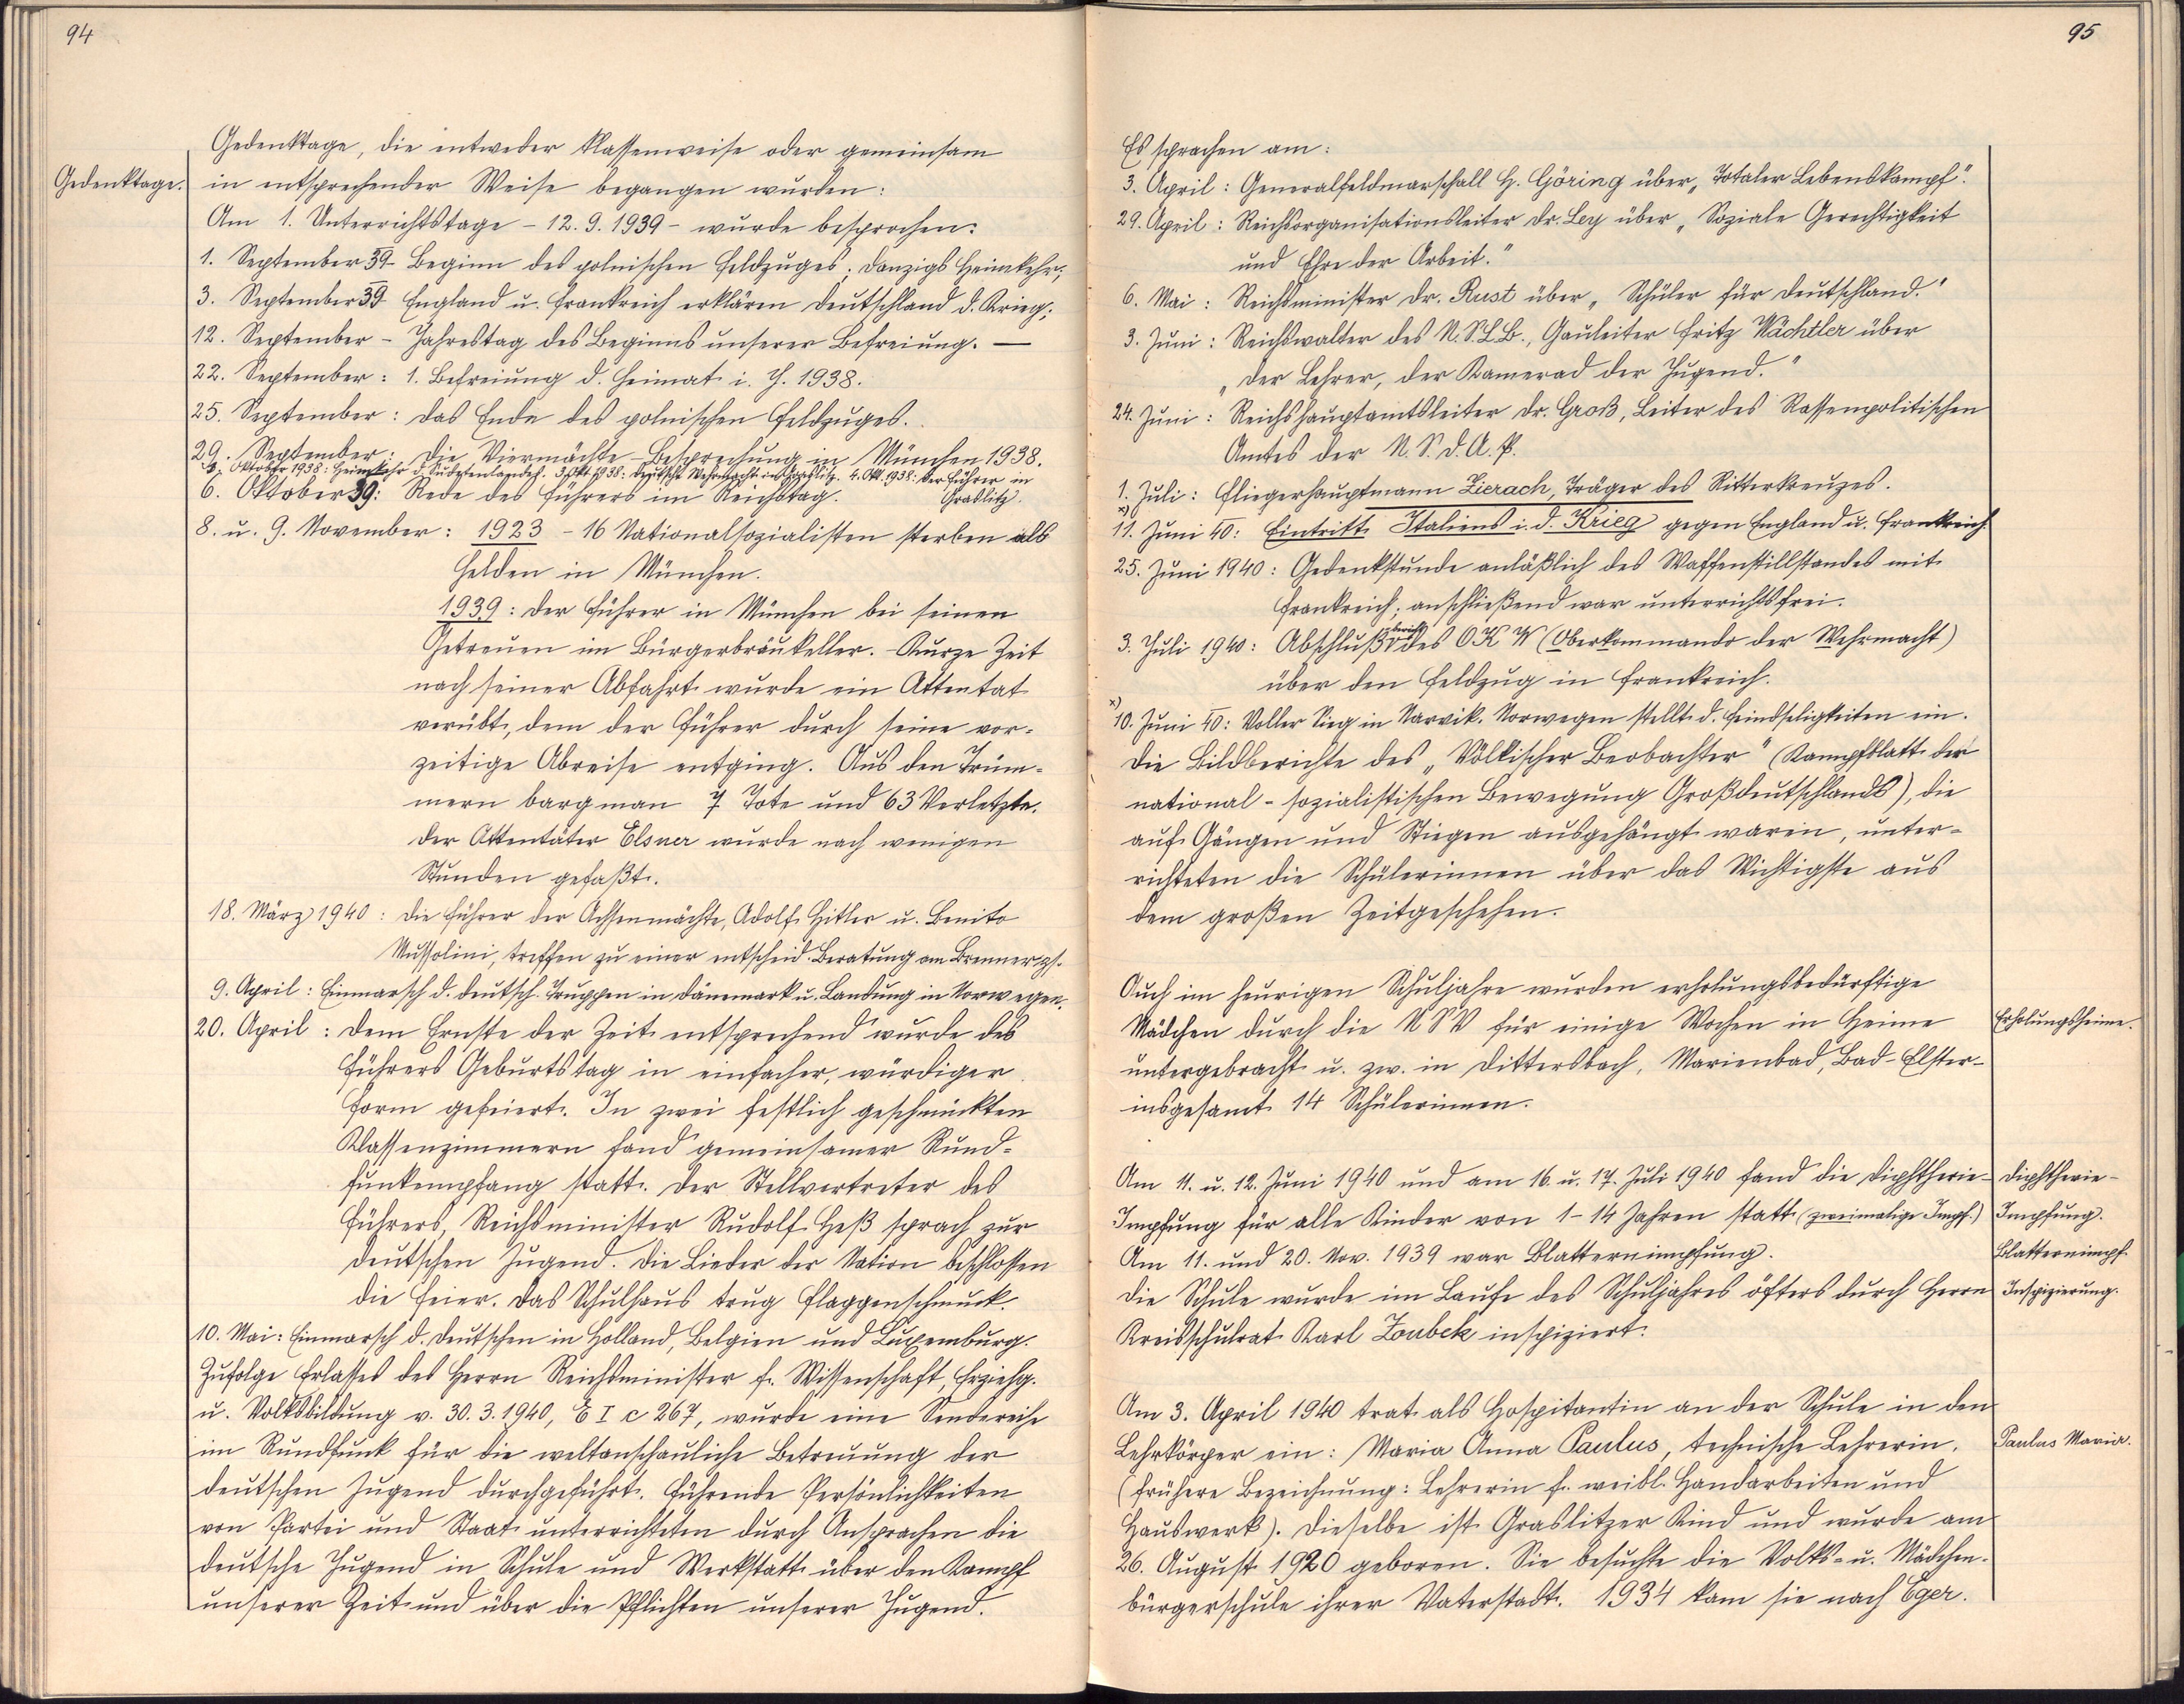 94
Gedenktage, die entweder klassenweise oder gemeinsam
Gedenktage. in entsprechender Weise begangen wurden:
Am 1. Unterrichtstage - 12.9.1939 - wurde besprochen:
1. September 39 - Beginn des polnischen Feldzuges; Danzigs Heimkehr;
3. September 39 England u. Frankreich erklären Deutschland d. Krieg;
12. September - Jahrestag des Beginns unserer Befreiung. —
22. September: 1. Befreiung d. Heimat i. J. 1938.
25. September: Das Ende des polnischen Feldzuges.
29. September: Die Viermächte-Besprechung in München 1938.
1. Oktober 1938: Heimkehr d. Sudetenlandes. 3. Okt. 1938: Deutsche Wehrmacht in Graslitz. 4. Okt. 1938: Der Führer in Graslitz.
6. Oktober 39: Rede des Führers im Reichstag.
8. u. 9. November: 1923 - 16 Nationalsozialisten sterben als
Helden in München.
1939: Der Führer in München bei seinen
Getreuen im Bürgerbräukeller. Kurze Zeit
nach seiner Abfahrt wurde ein Attentat
verübt, dem der Führer durch seine vor-
zeitige Abreise entging. Aus den Trüm-
mern barg man 7 Tote und 63 Verletzte.
Der Attentäter Elsner wurde nach wenigen
Stunden gefaßt.
18. März 1940: Die Führer der Achsenmächte, Adolf Hitler u. Benito
Mussolini, treffen zu einer entscheid. Beratung am Brenner zs.
9. April: Einmarsch d. deutsch. Truppen in Dänemark u. Landung in Norwegen.
20. April: Dem Ernste der Zeit entsprechend wurde des
Führers Geburtstag in einfacher, würdiger
Form gefeiert. In zwei festlich geschmückten
Klassenzimmern fand gemeinsamer Rund-
funkempfang statt. Der Stellvertreter des
Führers, Reichsminister Rudolf Heß sprach zur
deutschen Jugend. Die Lieder der Nation beschlossen
die Feier. Das Schulhaus trug Flaggenschmuck.
10. Mai: Einmarsch d. Deutschen in Holland, Belgien und Luxemburg.
Zufolge Erlasses des Herrn Reichsminister f. Wissenschaft, Erziehg.
u. Volksbildung v. 30.3.1940, E I c 267, wurde eine Sendereihe
im Rundfunk für die weltanschauliche Betreuung der
deutschen Jugend durchgeführt. Führende Persönlichkeiten
von Partei und Staat unterrichteten durch Ansprachen die
deutsche Jugend in Schule und Werkstatt über den Kampf
unserer Zeit und über die Pflichten unserer Jugend.
95
Es sprachen am:
3. April: Generalfeldmarschall H. Göring über „Totaler Lebenskampf".
29. April: Reichsorganisationsleiter Dr. Ley über „Soziale Gerechtigkeit
und Ehre der Arbeit."
6. Mai: Reichsminister Dr. Rust über „Schüler für Deutschland."
3. Juni: Reichswalter des N.S.L.B., Gauleiter Fritz Wächtler über
„Der Lehrer, der Kamerad der Jugend."
24. Juni: Reichshauptamtsleiter Dr. Groß, Leiter des Rassenpolitischen
Amtes der N.S.D.A.P.
1. Juli: Fliegerhauptmann Zierach, Träger des Ritterkreuzes.
x) 11. Juni 40: Eintritt Italiens i. d. Krieg gegen England u. Frankreich.
25. Juni 1940: Gedenkstunde anläßlich des Waffenstillstandes mit
Frankreich; anschließend war unterrichtsfrei.
3. Juli 1940: Abschlußbericht des OKW (Oberkommando der Wehrmacht)
über den Feldzug in Frankreich.
x) 10. Juni 40: Voller Sieg in Narvik. Norwegen stellt d. Feindseligkeiten ein.
Die Bildberichte des „Völkischer Beobachter" (Kampfblatt der
national-sozialistischen Bewegung Großdeutschlands), die
auf Gängen und Stiegen ausgehängt waren, unter-
richteten die Schülerinnen über das Wichtigste aus
dem großen Zeitgeschehen.
Auch im heurigen Schuljahre wurden erholungsbedürftige
Mädchen durch die NSV für einige Wochen in Heime Erholungsheime.
untergebracht u. zw. in Dittersbach, Marienbad, Bad-Elster-
insgesamt 14 Schülerinnen.
Am 11. u. 12. Juni 1940 und am 16. u. 17. Juli 1940 fand die Diphtherie- Diphtherie-
Impfung für alle Kinder von 1-14 Jahren statt (zweimalige Impf.) Impfung.
Am 11. und 20. Nov. 1939 war Blatternimpfung. Blatternimpf.
Die Schule wurde im Laufe des Schuljahres öfters durch Herrn Inspizierung.
Kreisschulrat Karl Zoubek inspiziert.
Am 3. April 1940 trat als Hospitantin an der Schule in den
Lehrkörper ein: Maria Anna Paulus, technische Lehrerin. Paulus Maria.
(frühere Bezeichnung: Lehrerin f. weibl. Handarbeiten und
Hauswerk). Dieselbe ist Graslitzer Kind und wurde am
26. August 1920 geboren. Sie besuchte die Volks- u. Mädchen-
bürgerschule ihrer Vaterstadt. 1934 kam sie nach Eger.